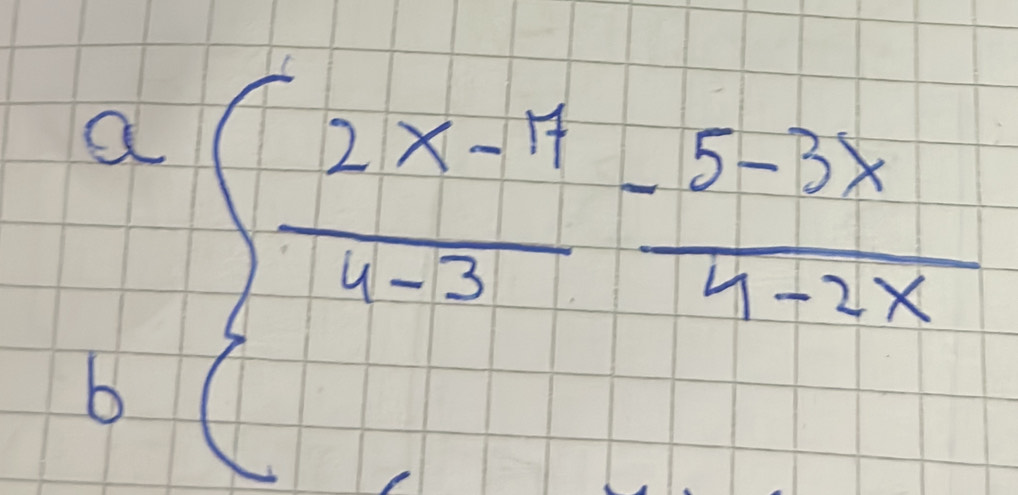 a { 2x - 17 / 4 - 3 - 5 - 3x / 4 - 2x
b